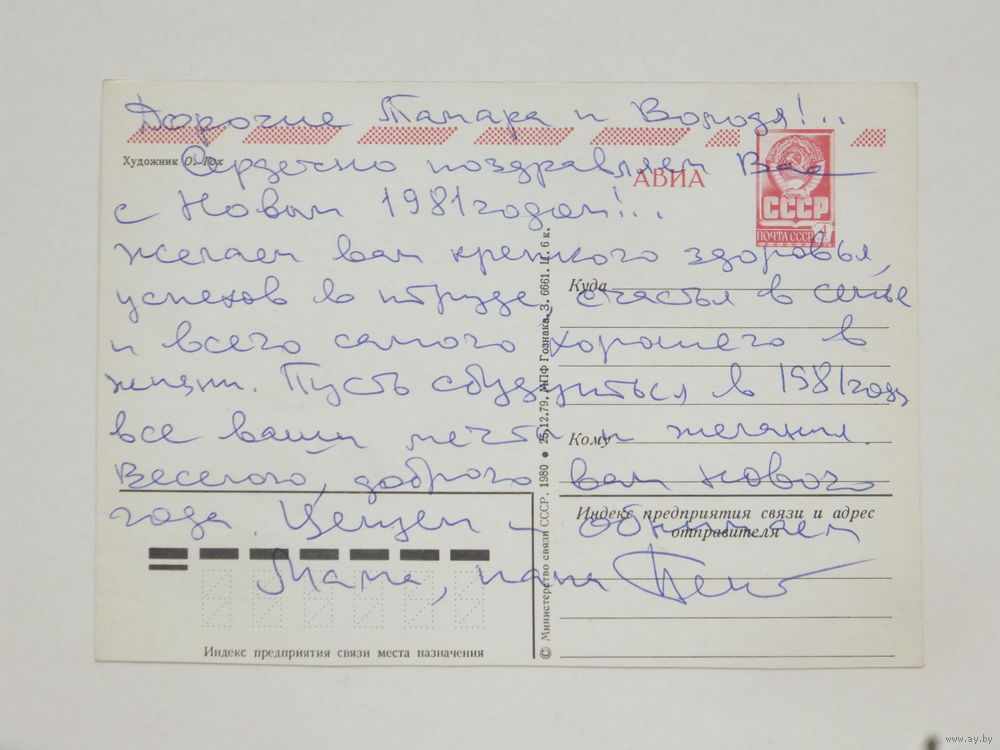 Дорогие Тамара и Володя!..
Художник О. Лох
Сердечно поздравляем Вас
АВИА
с Новым 1981 годом!..
СССР
ПОЧТА СССР 4
Желаем вам крепкого здоровья,
Куда
успехов в труде, счастья в семье
и всего самого хорошего в
жизни. Пусть сбудутся в 1981 году
все ваши мечты и желания.
Кому
Веселого, доброго вам Нового
года. Целуем и обнимаем
Индекс предприятия связи и адрес
отправителя
Мама, папа
Индекс предприятия связи места назначения
© Министерство связи СССР. 1980 • 25.12.79. МПФ Гознака. З. 6661. Ц. 6 к.
www.ay.by